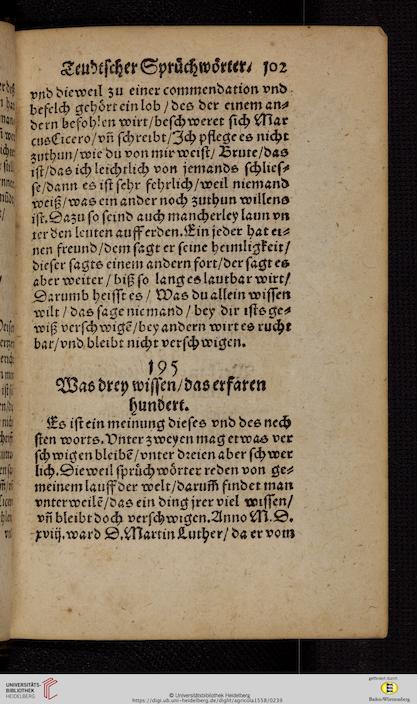 Teudtscher Sprüchwörter/ 102
vnd dieweil zu einer commendation vnd
befelch gehört ein lob / des der einem an=
dern befohlen wirt/beschweret sich Mar
cus Cicero/ vñ schreibt/Ich pflege es nicht
zuthun/wie du von mir weist/ Brute/das
ist/das ich leichtlich von jemands schlies=
se/dann es ist sehr fehrlich/weil niemand
weiß/was ein ander noch zuthun willens
ist. Dazu so seind auch mancherley laun vn
ter den leuten auff erden. Ein jeder hat ei=
nen freund/dem sagt er seine heimligkeit/
dieser sagts einem andern fort/der sagt es
aber weiter / biß so lang es lautbar wirt/
Darumb heisst es / Was du allein wissen
wilt / das sage niemand / bey dir ists ge=
wiß verschwigẽ/bey andern wirt es rucht
bar/vnd bleibt nicht verschwigen.
195
Was drey wissen/das erfaren
hundert.
Es ist ein meinung dieses vnd des nech
sten worts. Vnter zweyen mag etwas ver
schwigen bleibẽ/vnter dreien aber schwer
lich. Dieweil sprüchwörter reden von ge=
meinem lauff der welt/darum̃ findet man
vnterweilẽ/das ein ding jrer viel wissen/
vñ bleibt doch verschwigen. Anno M. D.
xviij. ward D. Martin Luther/ da er vom
UNIVERSITÄTS-
BIBLIOTHEK
HEIDELBERG
© Universitätsbibliothek Heidelberg
https://digi.ub.uni-heidelberg.de/diglit/agricola1558/0239
gefördert durch
Baden-Württemberg